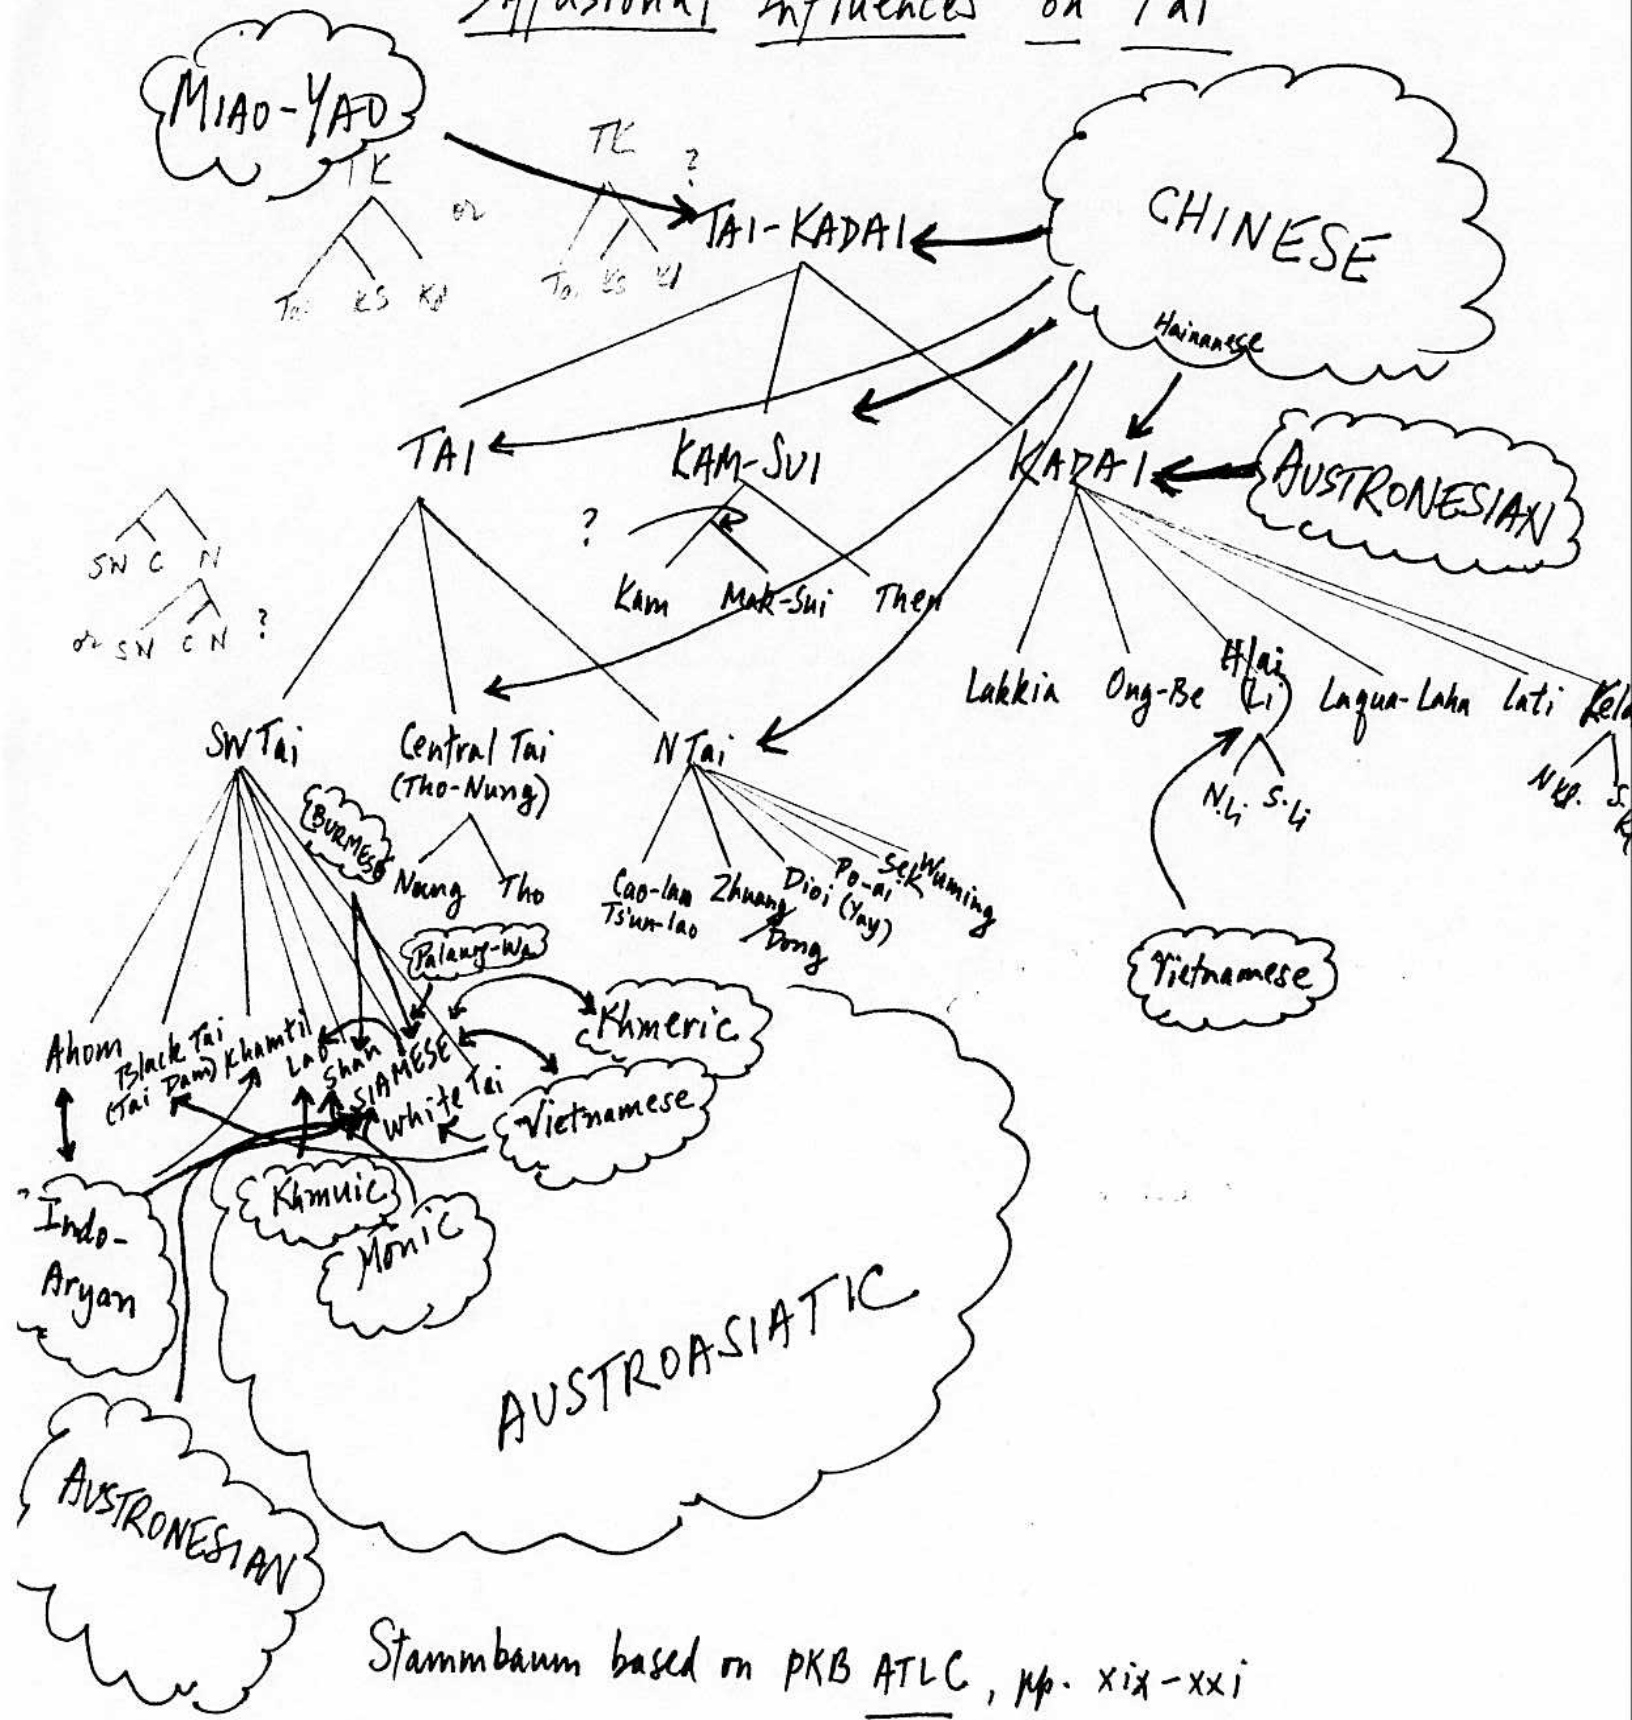 Diffusional Influences on Tai
MIAO-YAO
TK
or
TK
?
Ta. KS Kd
Ta. KS Kd
TAI-KADAI
CHINESE
Hainanese
TAI
KAM-SUI
KADAI
AUSTRONESIAN
SW C N
or SW C N ?
?
Kam Mak-Sui Then
Lakkia
Ong-Be
Hlai
(Li)
Laqua-Laha
Lati
N.Li S.Li
N Kl.
Vietnamese
SW Tai
Central Tai
(Tho-Nung)
N Tai
BURMESE
Nung Tho
Cao-lan
Ts'un-lao
Zhuang
Dong
Dioi (Yay)
Po-ai
Sek
Wuming
Palaung-Wa
Khmeric
Ahom
Black Tai
(Tai Dam)
Khamti
Lao
Shan
SIAMESE
White Tai
Vietnamese
Khmuic
Monic
Indo-
Aryan
AUSTROASIATIC
AUSTRONESIAN
Stammbaum based on PKB ATLC, pp. xix-xxi